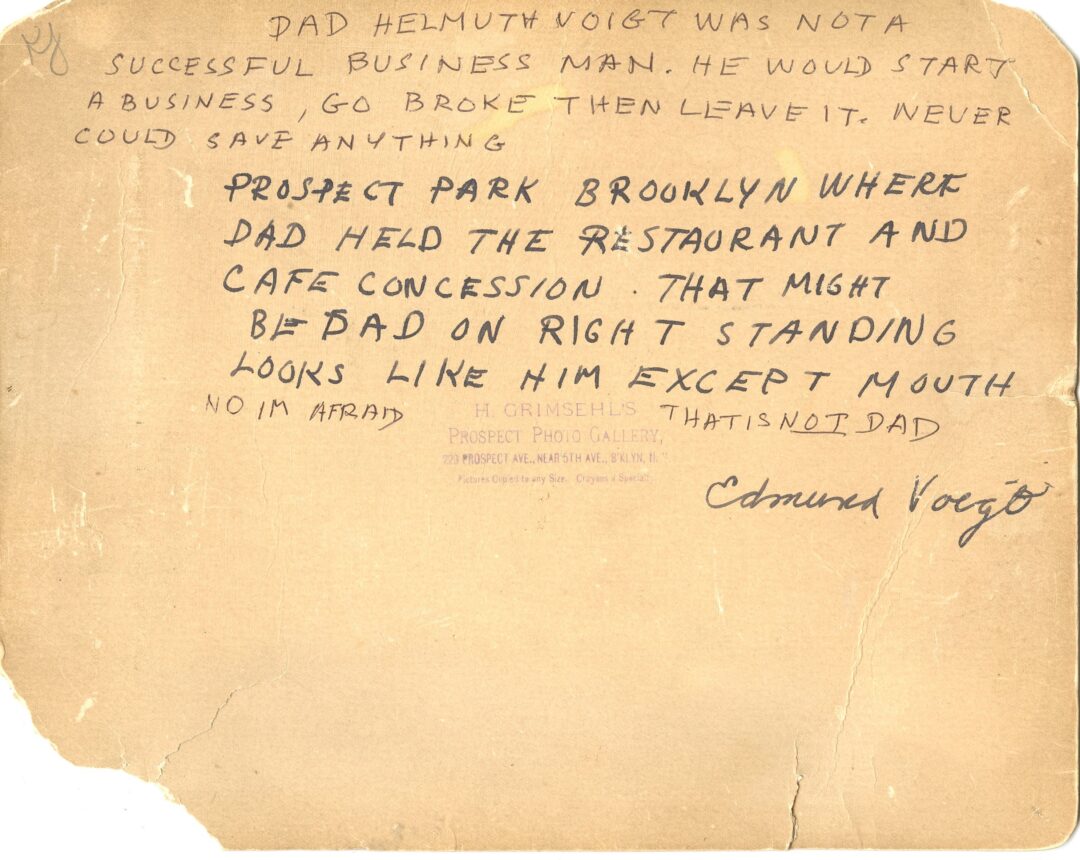 DAD HELMUTH VOIGT WAS NOT A
SUCCESSFUL BUSINESS MAN. HE WOULD START
A BUSINESS, GO BROKE THEN LEAVE IT. NEVER
COULD SAVE ANYTHING
PROSPECT PARK BROOKLYN WHERE
DAD HELD THE RESTAURANT AND
CAFE CONCESSION. THAT MIGHT
BE DAD ON RIGHT STANDING
LOOKS LIKE HIM EXCEPT MOUTH
NO IM AFRAID THAT IS NOT DAD
H. GRIMSEHL'S
PROSPECT PHOTO GALLERY,
223 PROSPECT AVE., NEAR 5TH AVE., B'KLYN, N.
Pictures Copied to any Size. Crayons a Special
Edmund Voigt